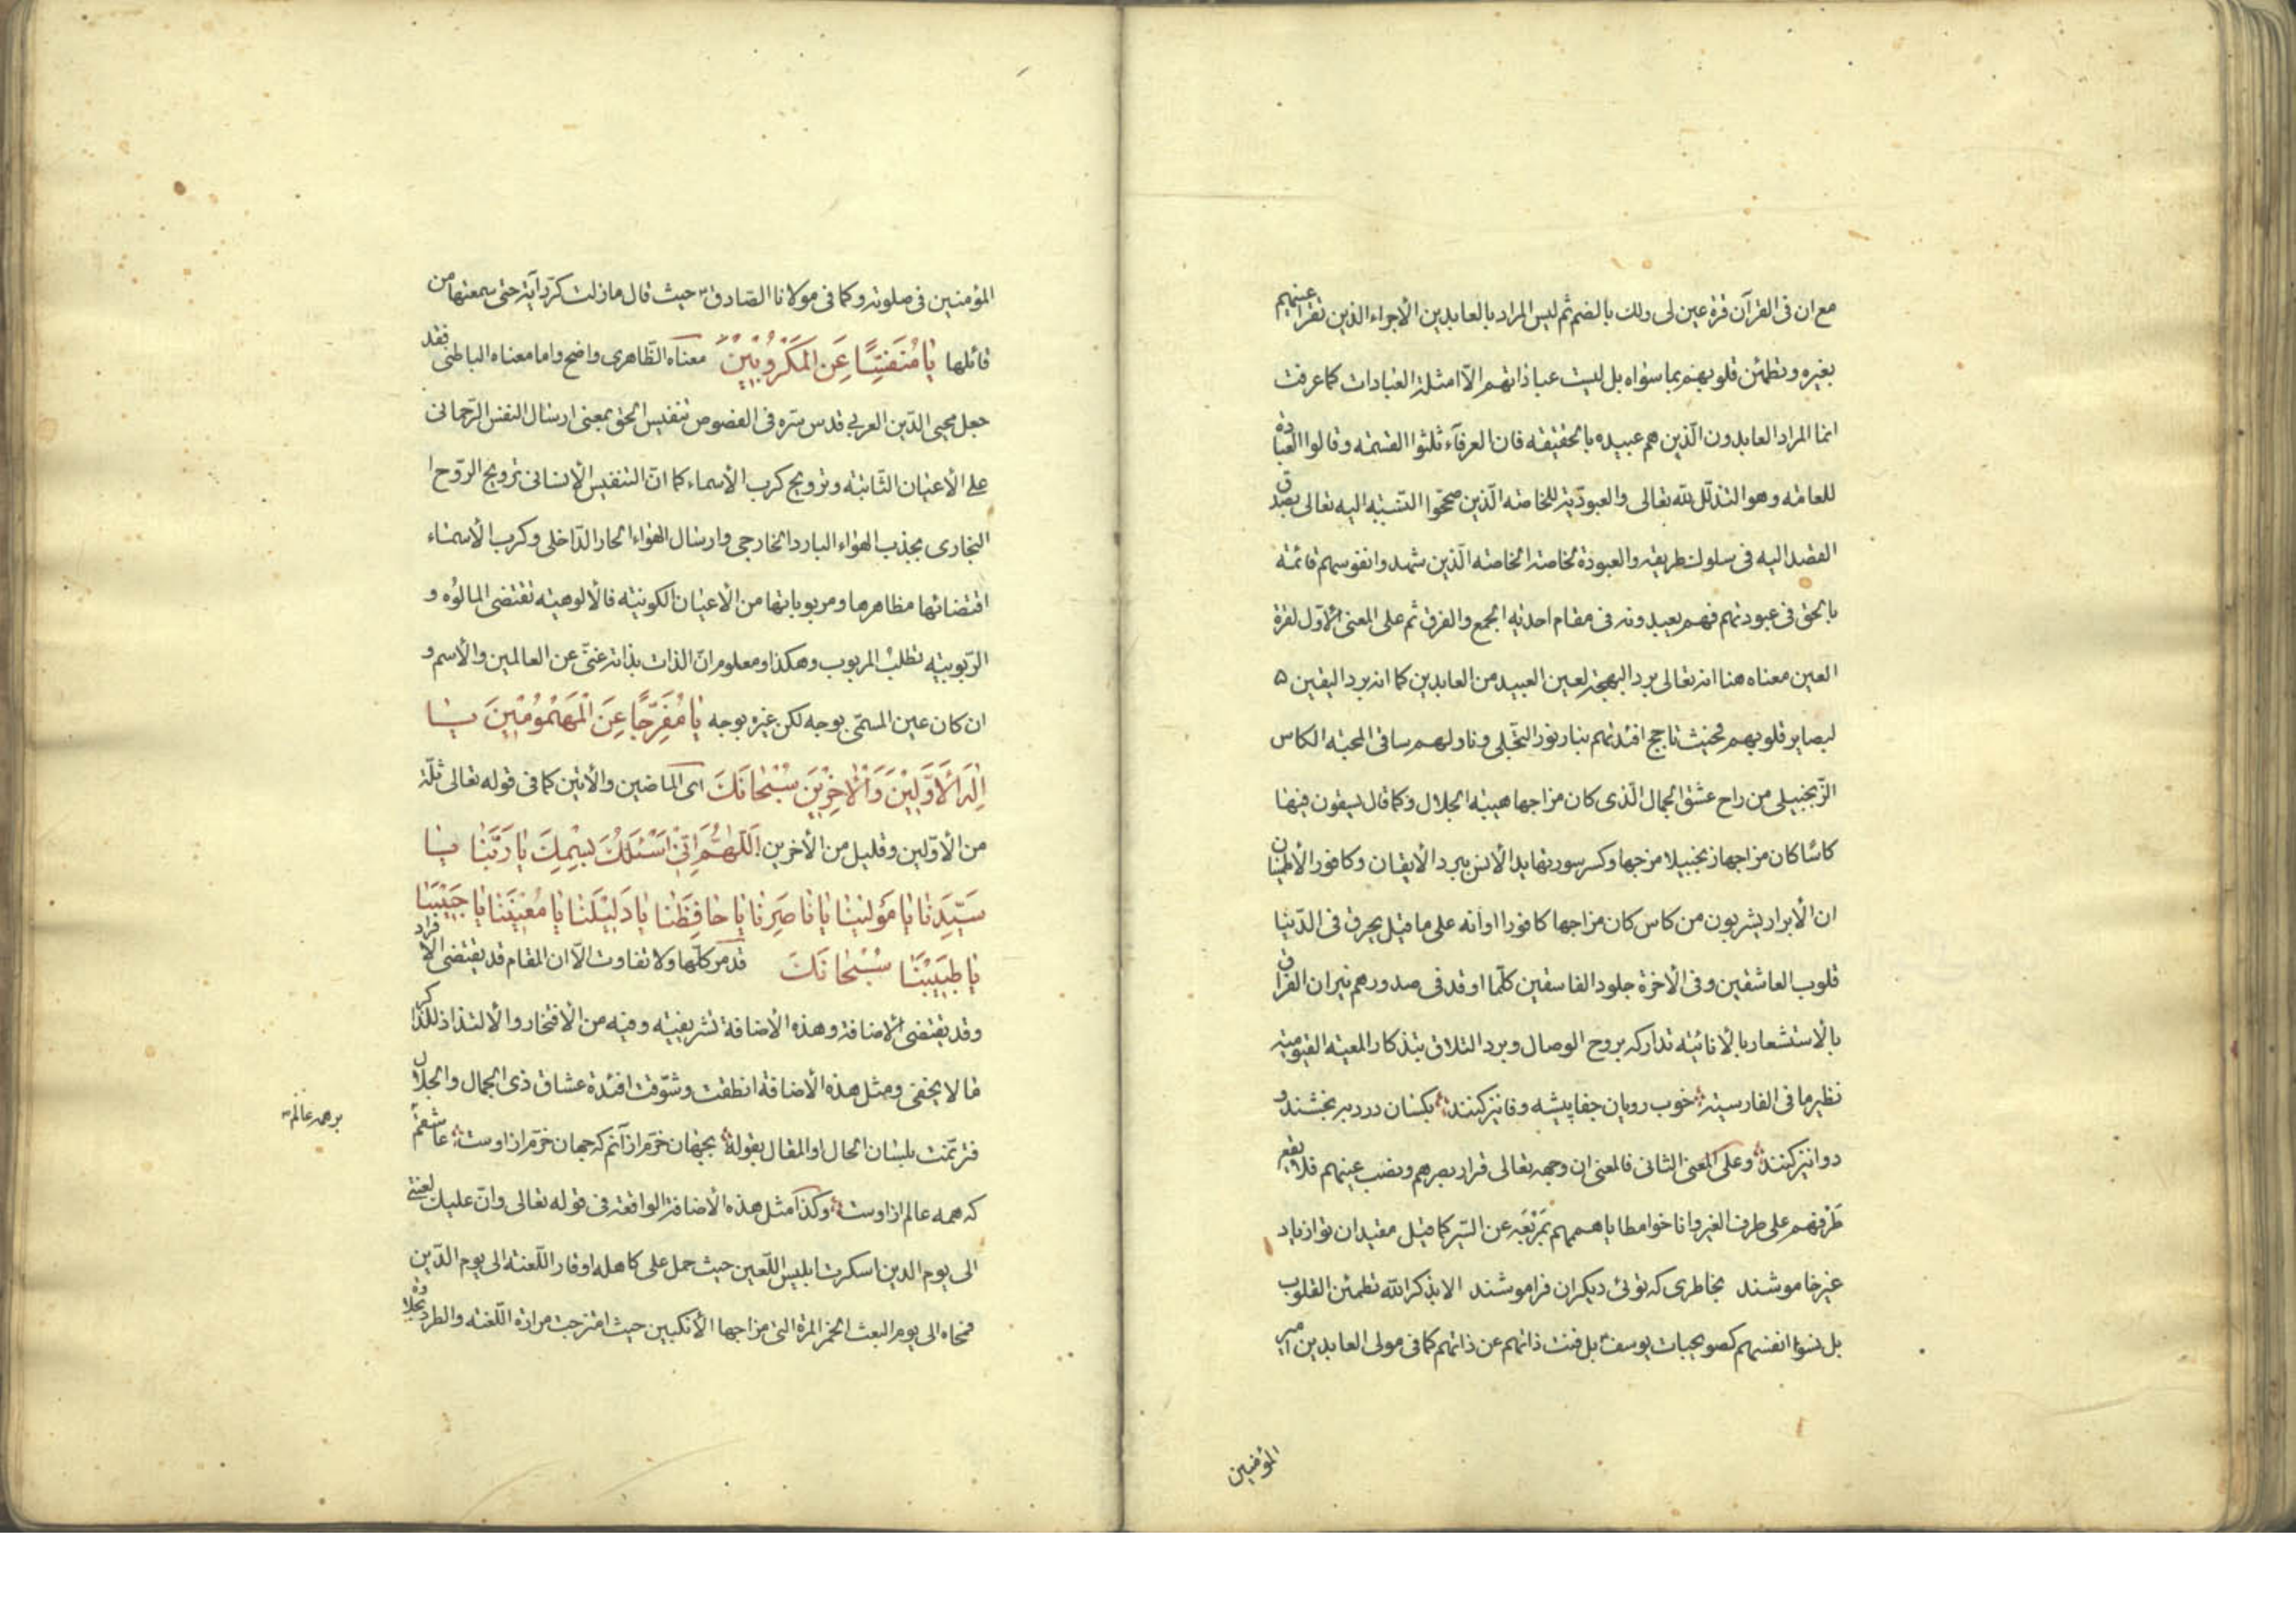 مع ان فى القرآن قرة عين لى ولك بالضم ثم ليس المراد بالعابدين الأجراء الذين تقرا عينهم
بغيره وتطمئن قلوبهم بما سواه بل ليست عباداتهم الّا امثلة العبادات كما عرفت
انما المراد العابدون الّذين هم عبيده بالحقيقه فان العرفآء ثلثوا القسمه وقالوا العبادة
للعامّه وهو التذلّل لله تعالى والعبوديّة للخاصّه الّذين صحّحوا النّسبة اليه تعالى بصدق
القصد اليه فى سلوك طريقه والعبودة لخاصة الخاصّه الّذين شهدوا نفوسهم قائمة
بالحق فى عبودتهم فهم يعبدونه فى مقام احديه الجمع والفرق ثم على المعنى الأوّل لقرة
العين معناه هنا انه تعالى برد البهجة لعين العبيد من العابدين كما انه برد اليقين ۵
لبصاير قلوبهم فحيث تاجج افئدتهم بنار نور التجلى وناولهم ساقى المحبة الكاس
الزّنجبيلى من راح عشق الجمال الّذى كان مزاجها هيبة الجلال وكما قال يسقون فيها
كاسًا كان مزاجها زنجبيلا مزجها وكسر سورتها بدا الأنس ببرد الأيقان وكافور الأطمينان
ان الأبرار يشربون من كاس كان مزاجها كافورا او أنه على ما قيل يحرق فى الدّنيا
قلوب العاشقين وفى الأخرة جلود الفاسقين كلّما اوقد فى صدورهم نيران الفراق
بالأستشعار بالأنانيّه تداركه بروح الوصال وبرد التلاق بتذكار المعية القيومية
نظير ما فى الفارسية خوب رويان جفا پيشه وفا نيز كنند بكسان درد ببخشند و
دوا نيز كنند وعلى المعنى الثانى فالمعنى ان وجهه تعالى قرار بصرهم ونصب عينهم فلا يقع
طَرْفهم على طرف الغير واناخوا مطايا هممهم بمَرْبَعَه عن السّير كما قيل مقيدان تو از ياد
غير خاموشند بخاطرى كه توئى ديكران فراموشند الا بذكر الله تطمئن القلوب
بل نسوا انفسهم كصويحبات يوسف بل فنت ذاتهم عن ذاتهم كما فى مولى العابدين امير
المؤمنين
المؤمنين فى صلوته وكما فى مولانا الصّادق حيث قال ما زلت كرّر آية حتى سمعتها من
قائلها يا مُنَفِّسًا عَنِ المَكْرُوبينَ معناه الظّاهرى واضح واما معناه الباطنى فقد
جعل محيى الدّين العربى قدس سرّه فى الفصوص تنفيس الحق بمعنى ارسال النفس الرّحمانى
على الأعيان الثّابتة وترويح كرب الأسماء كما انّ التنفيس الأنسانى ترويح الرّوح ا
البخارى بجذب الهواء البارد الخارجى وارسال الهواء الحار الدّاخلى وكرب الأسماء
اقتضائها مظاهرها ومربوباتها من الأعيان الكونيّه فالألوهيه تقتضى المالوُه و
الرّبوبيّه تطلب المربوب وهكذا ومعلوم انّ الذات بذاته غنىّ عن العالمين والأسم و
ان كان عين المسمّى بوجه لكن غيره بوجه يا مُفَرِّجًا عَنِ الْمَهْمُومِينَ يا
اِلٰهَ الْأَوَّلِينَ وَالْأٰخِرِينَ سُبْحٰانَكَ اى الماضين والأتين كما فى قوله تعالى ثلّة
من الأوّلين وقليل من الأخرين اَللّٰهُمَّ اِنّى اَسْئَلُكَ بِسْمِكَ يا رَبَّنا يا
سَيِّدَنا يا مَوْلينا يا ناصِرَنا يا حافِظَنا يا دَليلَنا يا مُعينَنا يا حَبيبَنا
يا طَبيبَنا سُبْحانَكَ قد مرّ كلّها ولا تفاوت الّا ان المقام قد يقتضى الافراد
وقد يقتضى الأضافة وهذه الأضافة تشريفيّه وفيه من الأفتخار والألتذاذ للذاكر
ما لا يخفى ومثل هذه الأضافة انطقت وشوّقت افئدة عشاق ذى الجمال والجلال
فترنّمت بلسان الحال او المقال بقوله بجهان خرّم از آنم كه جهان خرّم از اوست عاشقم
برهمه عالم
كه همه عالم از اوست وكذا مثل هذه الأضافة الواقعة فى قوله تعالى وانّ عليك لعنتى
الى يوم الدين اسكرت ابليس اللّعين حيث حمل على كاهله اوقار اللّعنة الى يوم الدّين
فمحاه الى يوم البعث الخمر المرة التى مزاجها الأنكبين حيث امتزجت مرارة اللّعنة والطرد بحلاوة